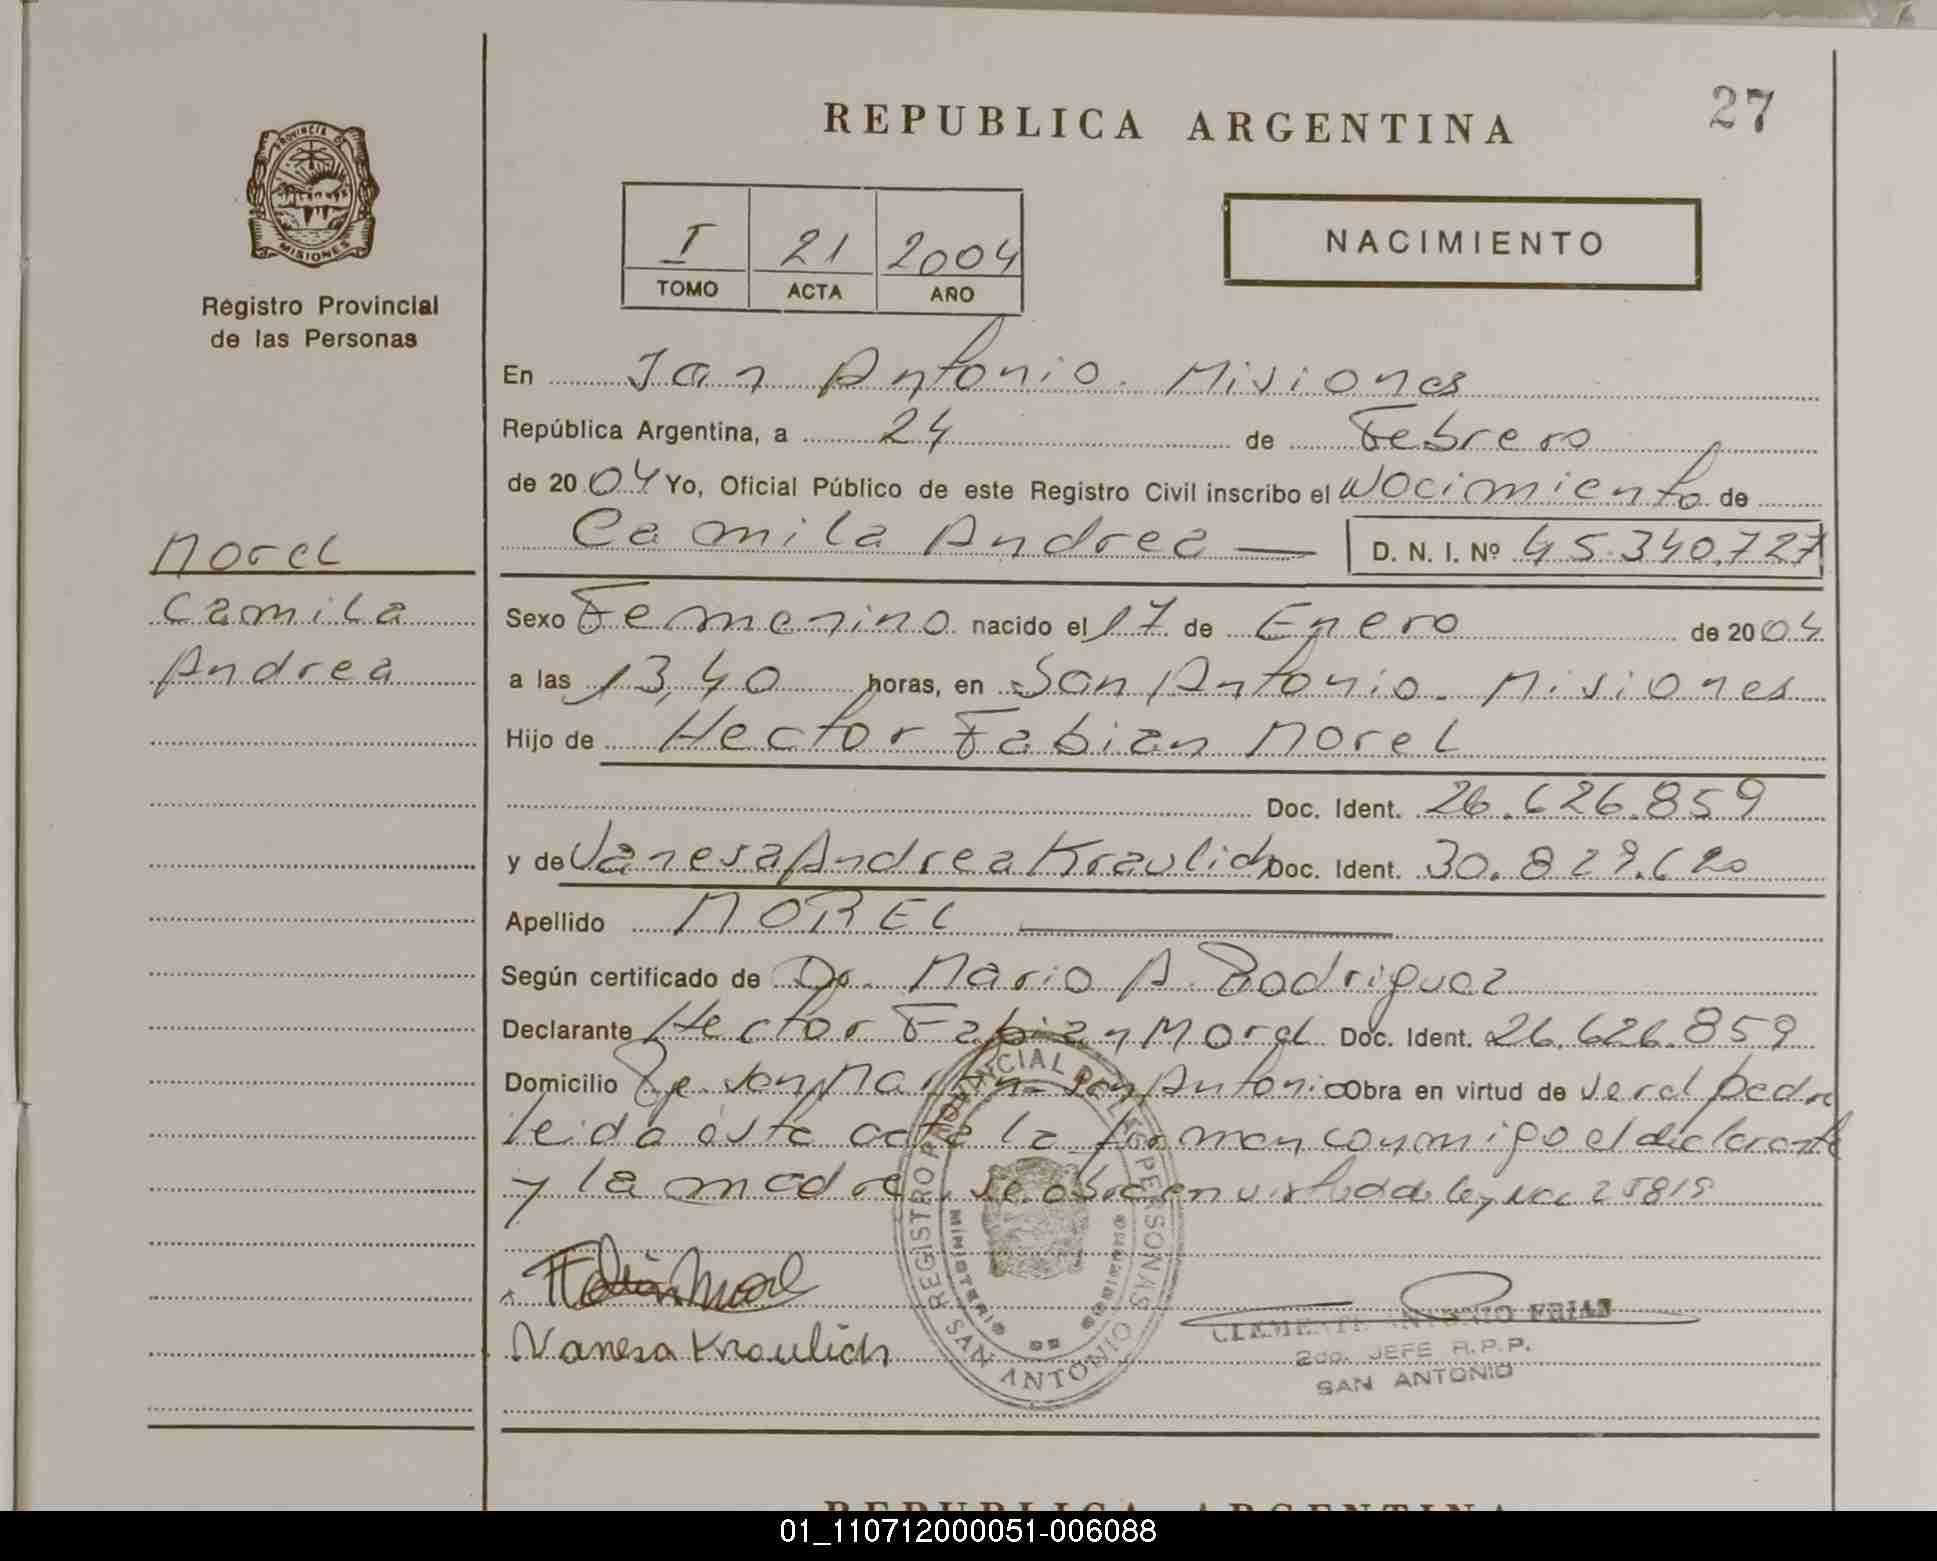 27
REPUBLICA ARGENTINA
PROVINCIA DE
MISIONES
Registro Provincial
de las Personas
I 21 2004
TOMO ACTA AÑO
NACIMIENTO
En San Antonio. Misiones
República Argentina, a 24 de Febrero
de 2004 Yo, Oficial Público de este Registro Civil inscribo el Nacimiento de
Camila Andrea — D. N. I. Nº 45.340.727
Morel
Camila
Andrea
Sexo Femenino nacido el 17 de Enero de 2004
a las 13,40 horas, en San Antonio. Misiones
Hijo de Hector Fabian Morel
Doc. Ident. 26.626.859
y de Vanesa Andrea Kraulich Doc. Ident. 30.829.620
Apellido MOREL
Según certificado de Dr. Mario A. Rodriguez
Declarante Hector Fabian Morel Doc. Ident. 26.626.859
Domicilio San Antonio Obra en virtud de ser el padre
leida ésta acta la firman conmigo el declarante
y la madre. se obra en virtud de ley Nro 25819
Fabián Morel
Vanesa Kraulich
REGISTRO PROVINCIAL DE LAS PERSONAS
MINISTERIO DE GOBIERNO
SAN ANTONIO
CLEMENTE ANTONIO FRIAS
2do. JEFE R.P.P.
SAN ANTONIO
REPUBLICA ARGENTINA
01_110712000051-006088